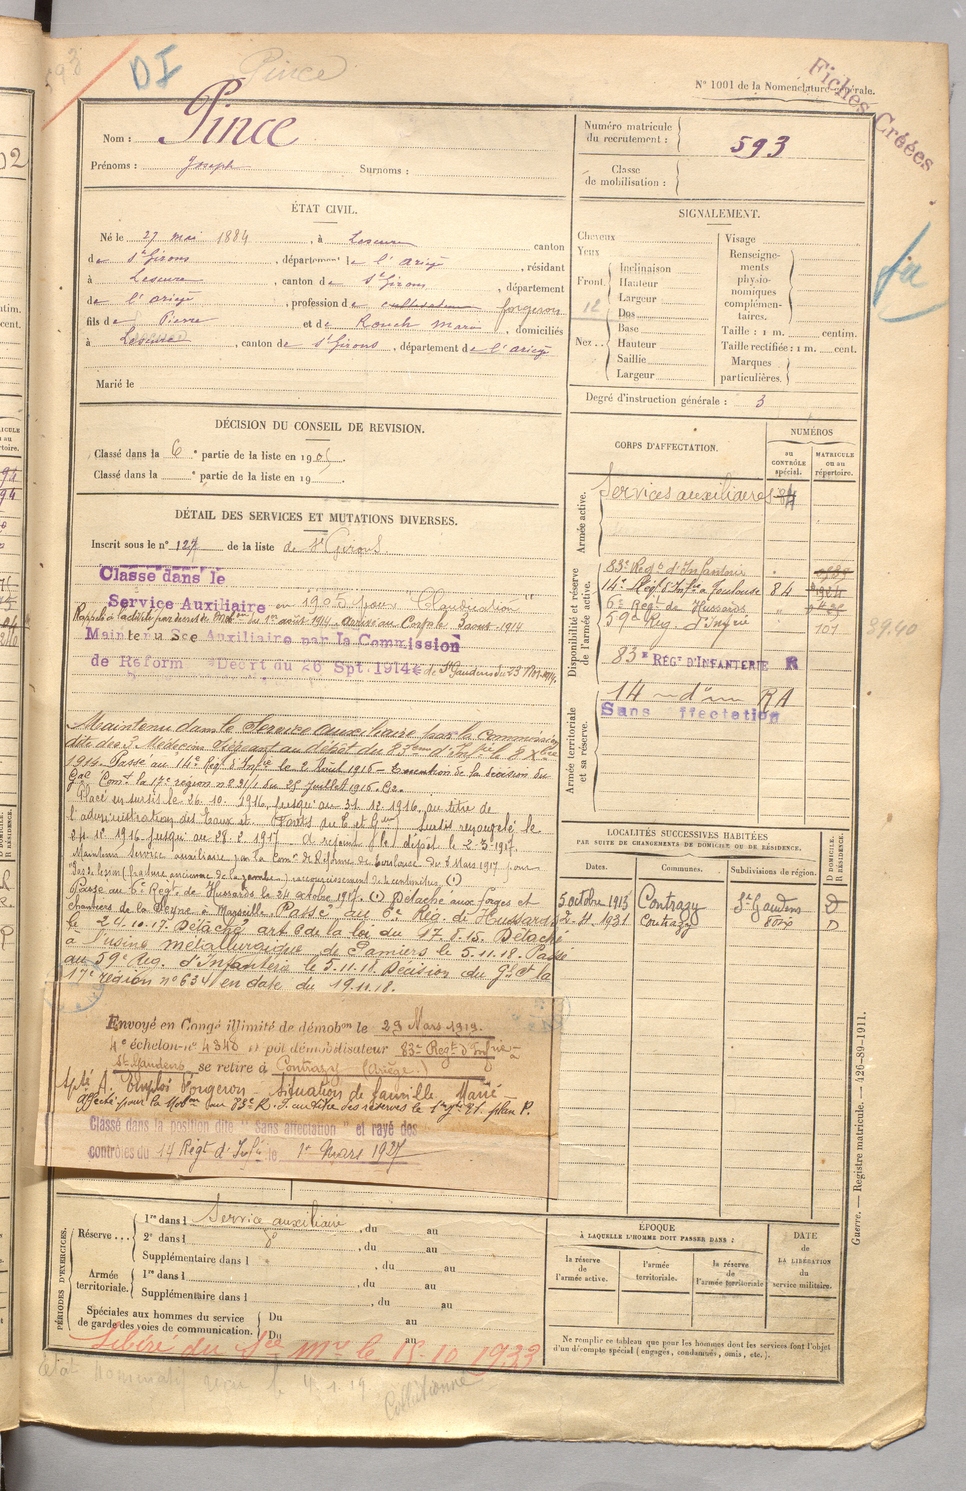 593
DI
Pince
N° 1001 de la Nomenclature générale.
Fiches Créées
Nom : Pince
Prénoms : Joseph Surnoms :
Numéro matricule du recrutement : 593
Classe de mobilisation :
ÉTAT CIVIL.
Né le 27 mai 1884, à Lescure canton
de St Girons, département de l'Ariège, résidant
à Lescure, canton de St Girons, département
de l'Ariège, profession de cultivateur forgeron
fils de Pierre et de Rouch Marie, domiciliés
à Lescure, canton de St Girons, département de l'Ariège
Marié le
SIGNALEMENT.
Cheveux
Yeux
Front
Inclinaison
Hauteur
Largeur
Nez..
Dos
Base
Hauteur
Saillie
Largeur
Visage
Renseignements physionomiques complémentaires.
Taille : 1 m. centim.
Taille rectifiée : 1 m. cent.
Marques particulières.
Degré d'instruction générale : 3
DÉCISION DU CONSEIL DE REVISION.
Classé dans la 6e partie de la liste en 1905
Classé dans la e partie de la liste en 19
DÉTAIL DES SERVICES ET MUTATIONS DIVERSES.
Inscrit sous le n° 127 de la liste de St Girons
Classé dans le
Service Auxiliaire en 1905 pour "Claudication"
Rappelé à l'activité par décret de Mobon du 1er août 1914. Arrivé au Corps le 3 août 1914
Maintenu Sce Auxiliaire par la Commission
de Réform Décrt du 26 Spt. 1914 de St Gaudens du 23 Nov. 1914.
Maintenu dans le Service auxiliaire par la Commission
dite des 3 Médecins siégeant au dépôt du 83ème d'Infie le 2 Xbre
1914. Passé au 14e Régt d'Infie le 2 Août 1916. Exécution de la décision du
Gal Comt la 17e région n° 21/1 du 25 Juillet 1916.
Placé en sursis le 26.10.1916, jusqu'au 31.12.1916, au titre de
l'administration des Eaux et Forêts sursis renouvelé le
31.12.1916 jusqu'au 28.2.1917. A rejoint le dépôt le 2.3.1917.
Maintenu Service auxiliaire par la Comon de Réforme de Toulouse du 8 Mars 1917 pour
(fracture ancienne de la jambe) raccourcissement de centimètres (1)
Passé au 6e Régt de Hussards le 24 octobre 1917. (1) Détaché aux forges et
chantiers de la Seyne à Marseille. Passé au 6e Rég. de Hussards
le 24.10.17. Détaché art. 6 de la loi du 17.8.15. Détaché
à l'usine métallurgique de Pamiers le 5.11.18. Passé
au 59e Rég. d'Infanterie le 5.11.18. Décision du Gal Ct la
17e région n° 634 en date du 19.11.18.
Envoyé en Congé illimité de démobon le 23 Mars 1919.
4e échelon n° 4348 Dépôt démobilisateur 83e Régt d'Infie à
St Gaudens se retire à Contrazy (Ariège.)
Apté A. Emploi Forgeron situation de famille Marié
Affecté pour la Mobon au 83e R.I. au titre des réserves le 1er plan P.
Classé dans la position dite "Sans affectation" et rayé des
contrôles du 14 Régt d'Infie le 1er Mars 1927
CORPS D'AFFECTATION.
NUMÉROS
au CONTRÔLE spécial.
MATRICULE ou au répertoire.
Armée active.
Services auxiliaires 84
Disponibilité et réserve de l'armée active.
83e Régt d'Infanterie
14e Régt d'Infie à Toulouse 84
6e Régt de Hussards
59e Rég. d'Infie 101
83e RÉGt D'INFANTERIE R
Armée territoriale et sa réserve.
14 — d° — RA
Sans ffectation
LOCALITÉS SUCCESSIVES HABITÉES
PAR SUITE DE CHANGEMENTS DE DOMICILE OU DE RÉSIDENCE.
Dates. Communes. Subdivisions de région. D DOMICILE. R RÉSIDENCE.
5 octobre 1913 Contrazy St Gaudens D
2.4.1931 Contrazy Foix D
PÉRIODES D'EXERCICES.
Réserve...
1re dans l Service auxiliaire, du au
2e dans l d°, du au
Supplémentaire dans l, du au
Armée territoriale.
1re dans l, du au
Supplémentaire dans l, du au
Spéciales aux hommes du service de garde des voies de communication.
Du au
Du au
Libéré du Sce Mre le 15.10.1933
ÉPOQUE
À LAQUELLE L'HOMME DOIT PASSER DANS :
la réserve de l'armée active.
l'armée territoriale.
la réserve de l'armée territoriale
DATE de LA LIBÉRATION du service militaire.
Ne remplir ce tableau que pour les hommes dont les services font l'objet
d'un décompte spécial (engagés, condamnés, omis, etc.).
Guerre. — Registre matricule. — 426-89-1911.
état nominatif reçu le 4.1.19
Collationné